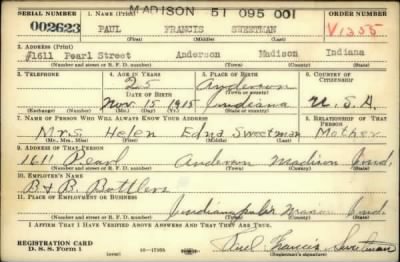 MADISON 51 095 001
SERIAL NUMBER 1. NAME (Print) ORDER NUMBER
002623 PAUL FRANCIS SWEETMAN V1355
(First) (Middle) (Last)
2. ADDRESS (Print)
1611 Pearl Street Anderson Madison Indiana
(Number and street or R. F. D. number) (Town) (County) (State)
3. TELEPHONE 4. AGE IN YEARS 5. PLACE OF BIRTH 6. COUNTRY OF CITIZENSHIP
25 Anderson
DATE OF BIRTH (Town or county)
Nov. 15 1915 Indiana U.S.A.
(Exchange) (Number) (Mo.) (Day) (Yr.) (State or country)
7. NAME OF PERSON WHO WILL ALWAYS KNOW YOUR ADDRESS 8. RELATIONSHIP OF THAT PERSON
Mrs. Helen Edna Sweetman Mother
(Mr., Mrs., Miss) (First) (Middle) (Last)
9. ADDRESS OF THAT PERSON
1611 Pearl Anderson Madison Ind.
(Number and street or R. F. D. number) (Town) (County) (State)
10. EMPLOYER'S NAME
B & B Bottlers
11. PLACE OF EMPLOYMENT OR BUSINESS
Indianapolis Marion Ind.
(Number and street or R. F. D. number) (Town) (County) (State)
I AFFIRM THAT I HAVE VERIFIED ABOVE ANSWERS AND THAT THEY ARE TRUE.
REGISTRATION CARD
D. S. S. Form 1 Paul Francis Sweetman
(Registrant's signature)